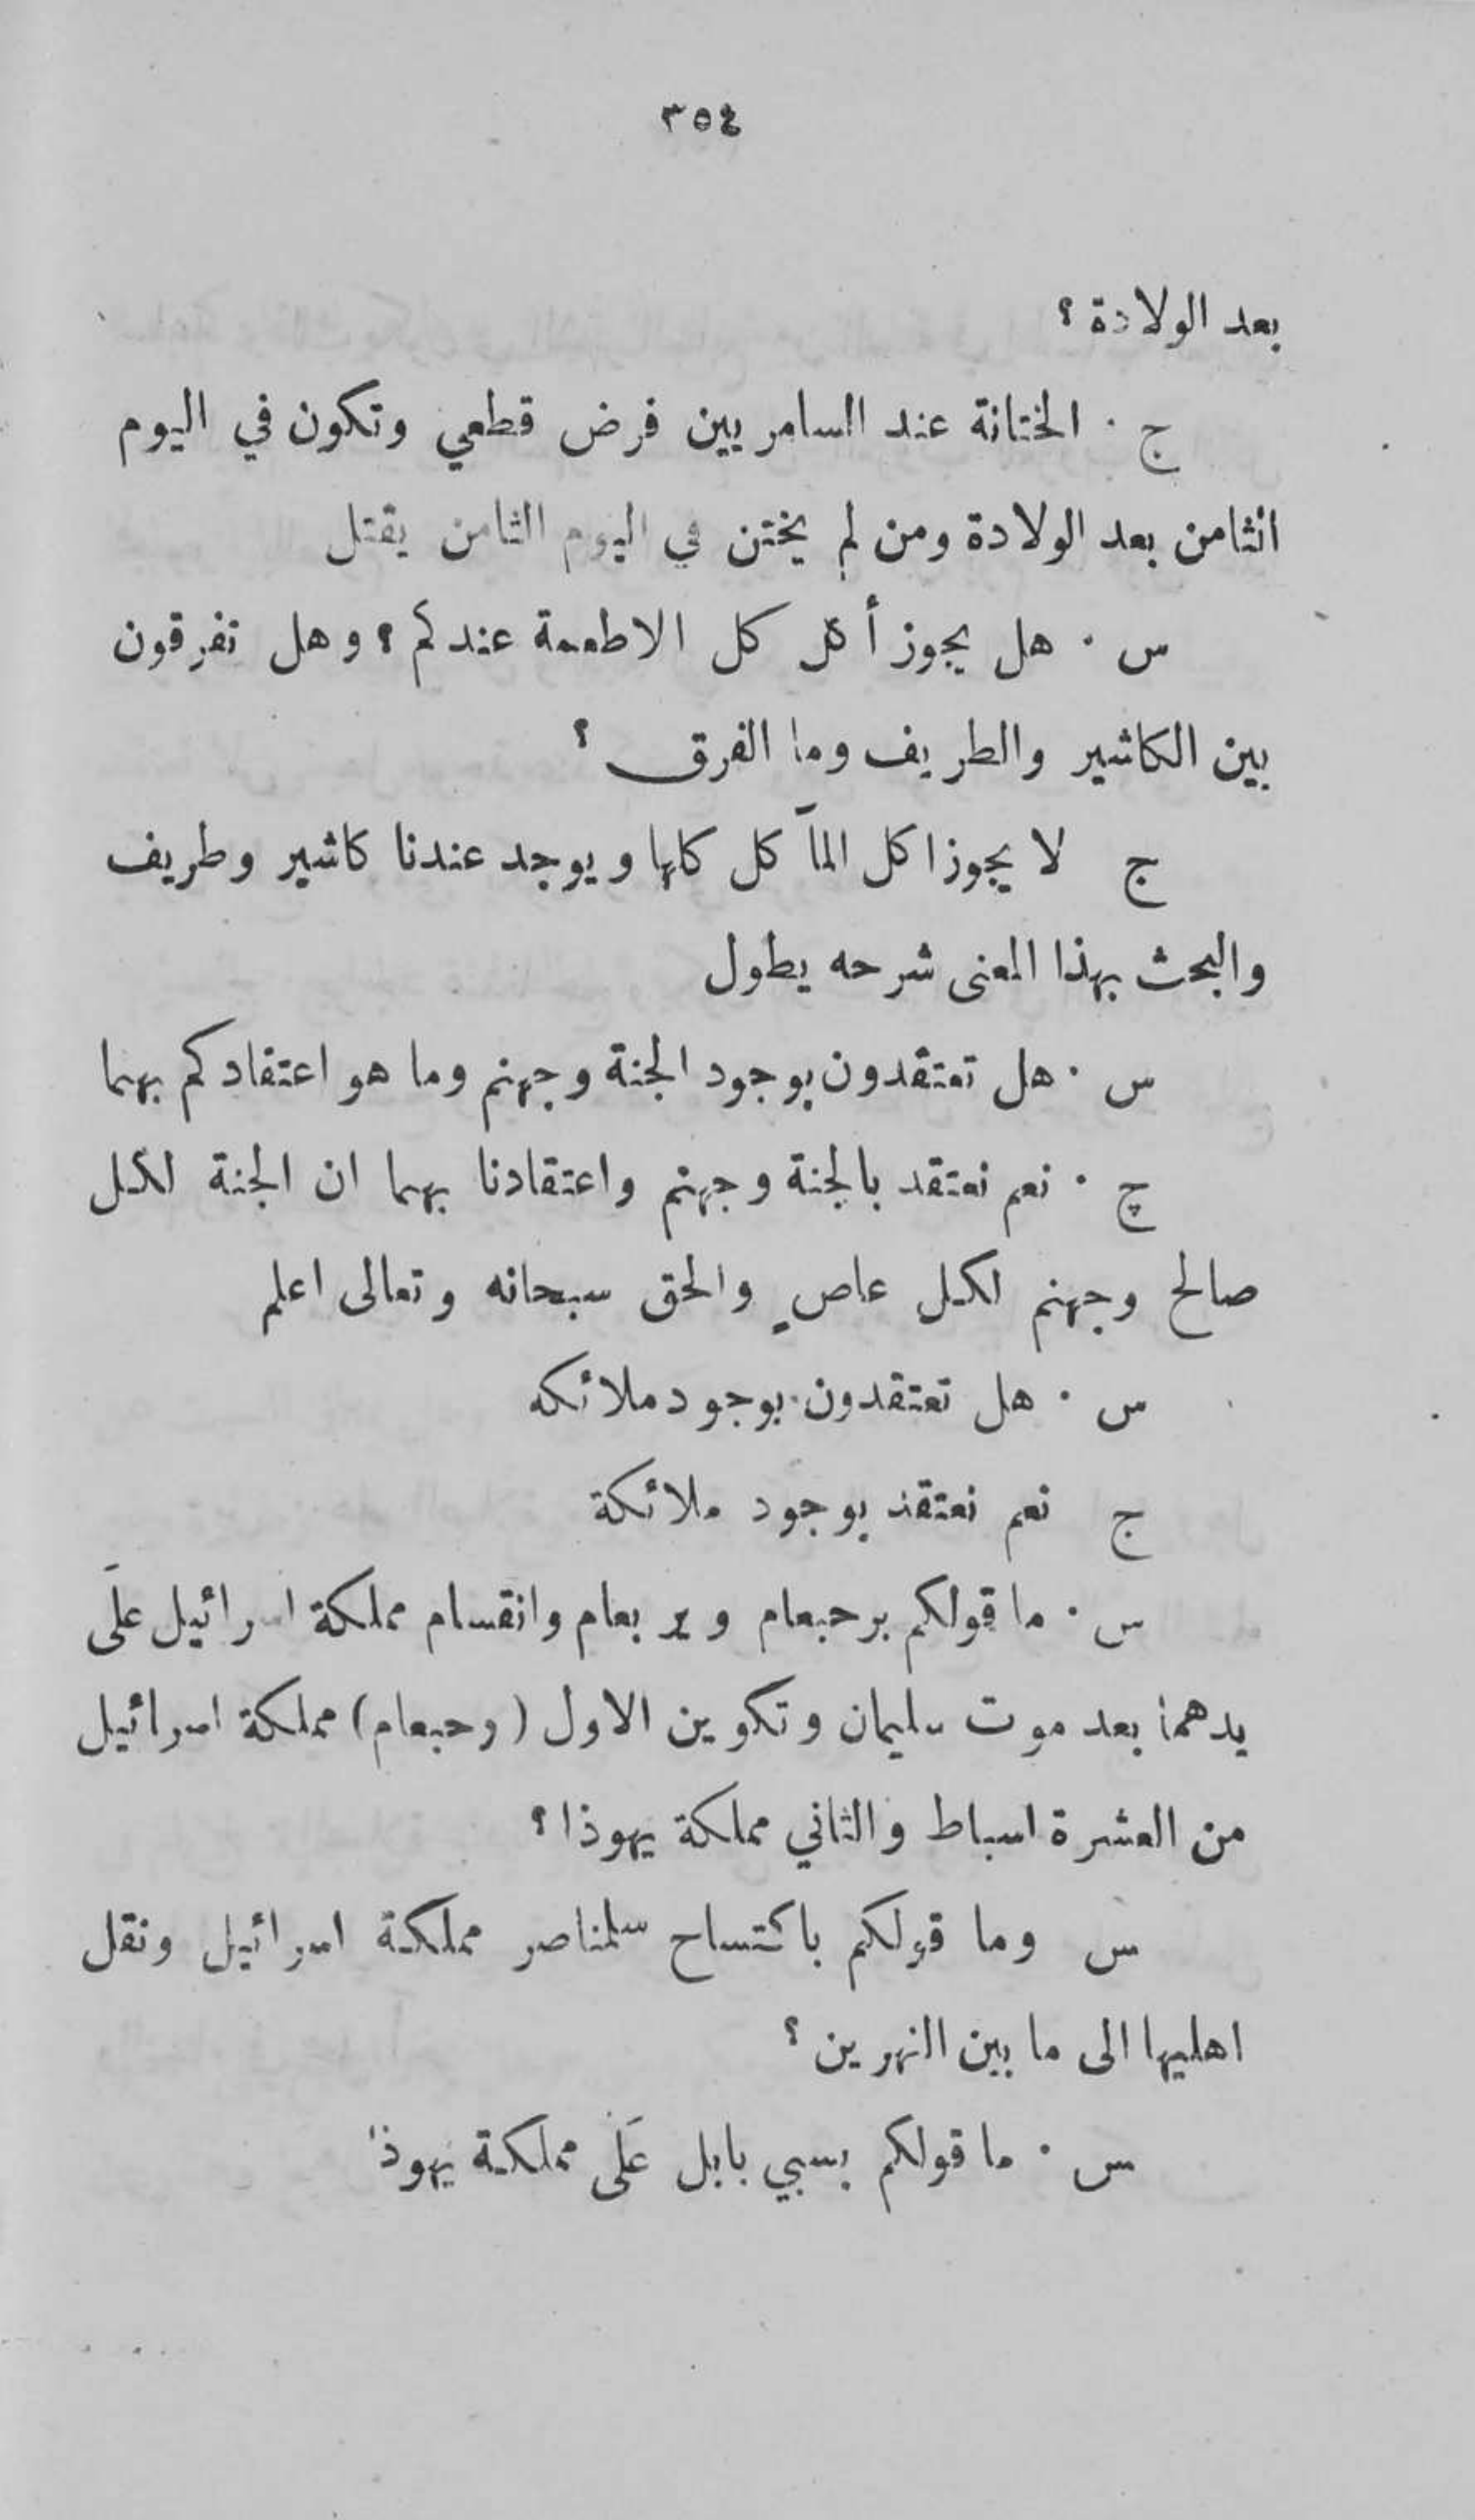 ٣٥٤
بعد الولادة ؟
ج ٠ الختانة عند السامريين فرض قطعي وتكون في اليوم
الثامن بعد الولادة ومن لم يختن في اليوم الثامن يقتل
س ٠ هل يجوز أكل كل الاطعمة عندكم ؟ وهل تفرقون
بين الكاشير والطريف وما الفرق ؟
ج لا يجوز اكل المآكل كلها ويوجد عندنا كاشير وطريف
والبحث بهذا المعنى شرحه يطول
س ٠ هل تعتقدون بوجود الجنة وجهنم وما هو اعتقادكم بهما
ج ٠ نعم نعتقد بالجنة وجهنم واعتقادنا بهما ان الجنة لكل
صالح وجهنم لكل عاصٍ والحق سبحانه وتعالى اعلم
س ٠ هل تعتقدون بوجود ملائكه
ج نعم نعتقد بوجود ملائكة
س ٠ ما قولكم برحبعام ويربعام وانقسام مملكة اسرائيل على
يدهما بعد موت سليمان وتكوين الاول (رحبعام) مملكة اسرائيل
من العشرة اسباط والثاني مملكة يهوذا ؟
س وما قولكم باكتساح سلمناصر مملكة اسرائيل ونقل
اهليها الى ما بين النهرين ؟
س ٠ ما قولكم بسبي بابل على مملكة يهوذا